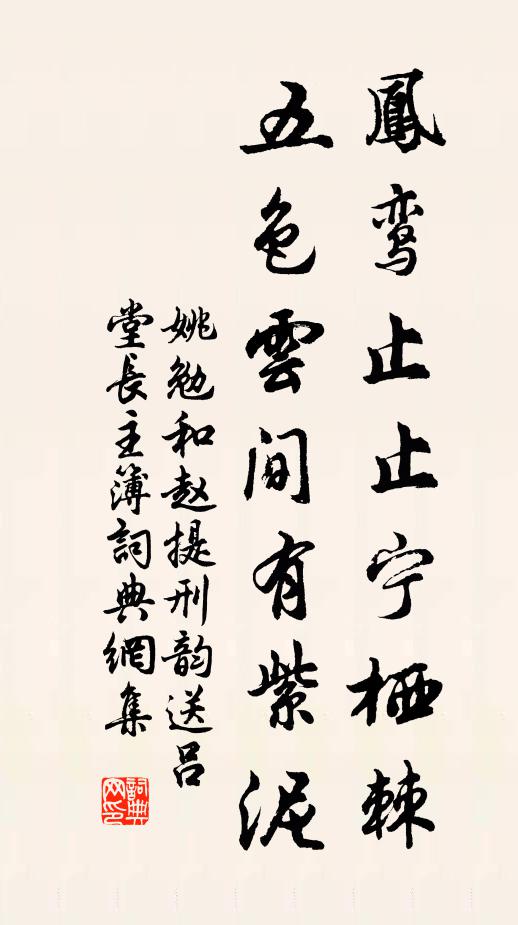 鳳鸾止止宁栖棘
五色雲间有紫泥
姚勉和赵提刑韵送吕
堂長主簿詞典網集
詞典
网印